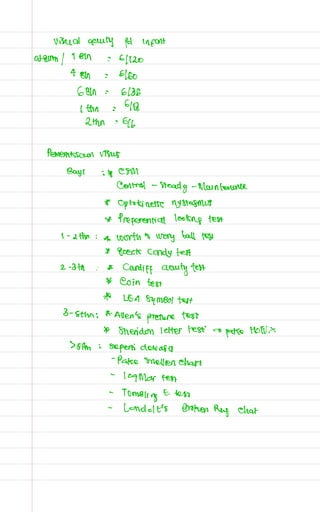 Visual acuity pd infant
aterm / 1 bln : 6/120
4 bln : 6/60
6 bln : 6/36
1 thn : 6/18
2 thn : 6/6
Pemeriksaan visus
Bayi : * CSM
Central - Steady - Maintenance
* Optokinetic nystagmus
* Preferential looking test
1-2 thn : * Worth's ivory ball test
* Boeck Candy test
2-3 th : * Cardiff acuity test
* Coin test
* LEA Symbol test
3-5 thn : * Allen's picture test
* Sheridan letter test → pake
>5 thn : seperti dewasa
- Pake snellen chart
- LogMar test
- Tumbling E test
- Landolt's Broken Ring chat